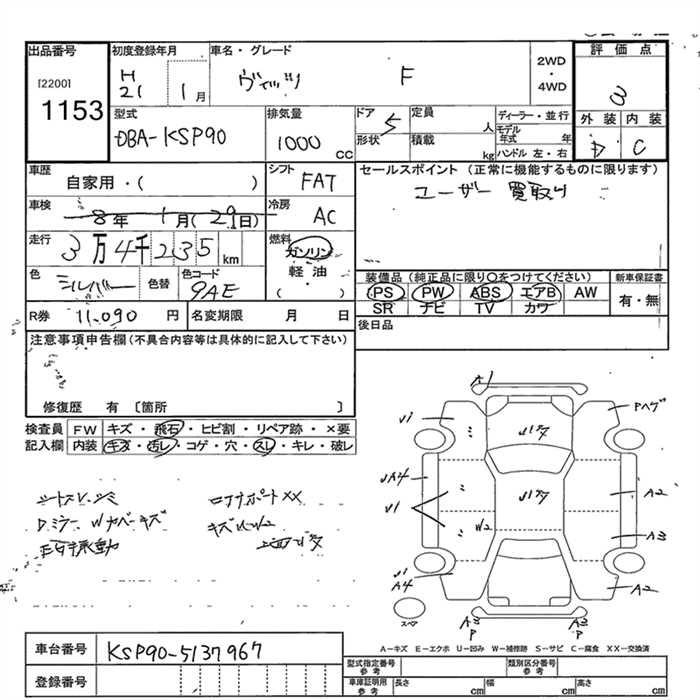 出品番号
[2200]
1153
初度登録年月
H
21
1月
車名・グレード
ヴィッツ F
2WD
・
4WD
評価点
3
外装 内装
D C
型式
DBA-KSP90
排気量
1000
CC
ドア 5
形状
定員 人
積載 kg
ディーラー・並行
モデル年式 年
ハンドル 左・右
車歴
自家用・( )
車検
8年 1月(29日)
走行
3万4千235 km
色
シルバー
色替
色コード
9AE
シフト
FAT
冷房
AC
燃料
ガソリン
軽油
( )
セールスポイント(正常に機能するものに限ります)
ユーザー 買取り
装備品(純正品に限り〇をつけてください)
PS PW ABS エアB AW
SR ナビ TV カワ
新車保証書
有・無
R券 11,090 円
名変期限 月 日
後日品
注意事項申告欄(不具合内容等は具体的に記入して下さい)
修復歴 有 〔箇所 〕
検査員
記入欄
FW キズ・飛石・ヒビ割・リペア跡・×要
内装 キズ・汚レ・コゲ・穴・スレ・キレ・破レ
シートスレ、シミ
Dミラー Wカバーキズ
キズ
XX
A1
Pハゲ
U1
UA4
U1
W2
A2
A3
A2
U1
A4
スペア
A3
P
A3
P
A－キズ E－エクボ U－凹み W－補修跡 S－サビ C－腐食 XX－交換済
車台番号 KSP90-5137967
登録番号
型式指定番号
参考
類別区分番号
参考
車庫証明用
参考
長さ cm 幅 cm 高さ cm